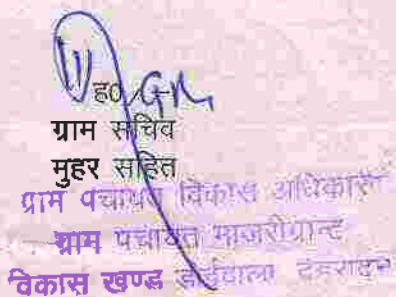 ह०
ग्राम सचिव
मुहर सहित
ग्राम पंचायत विकास अधिकारी
ग्राम पंचायत माजरीग्रान्ट
विकास खण्ड डोईवाला देहरादून